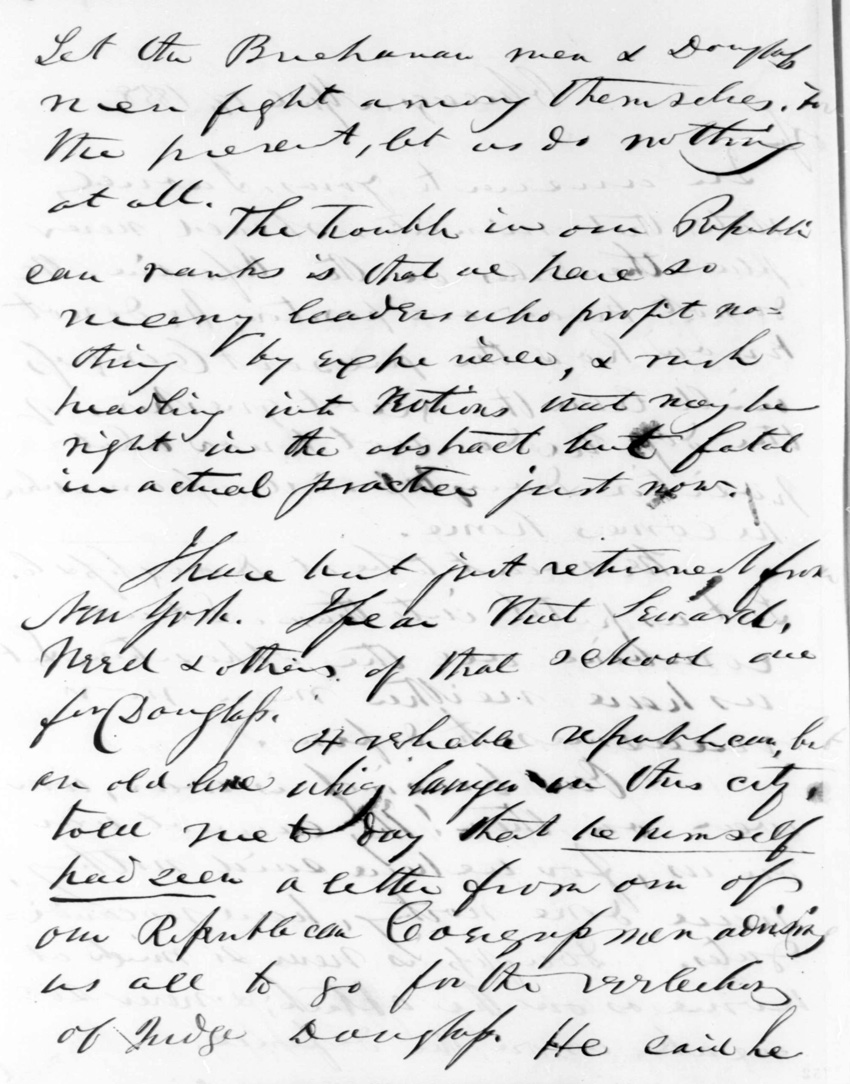 Let the Buchanan men & Douglass
men fight among themselves. For
the present, let us do nothing
at all.
The trouble in our Republi
can ranks is that we have so
many leaders who profit no=
thing by experience, & rush
headling into notions that may be
right in the abstract but fatal
in actual practice just now.
I have but just returned from
New York. I fear that Seward,
Weed & others of that school are
for Douglass.
A reliable republican, but
an old line whig lawyer in this city,
told me to day that he himself
had seen a letter from one of
our Republican Congressmen advising
us all to go for the reelection
of Judge Douglass. He said he